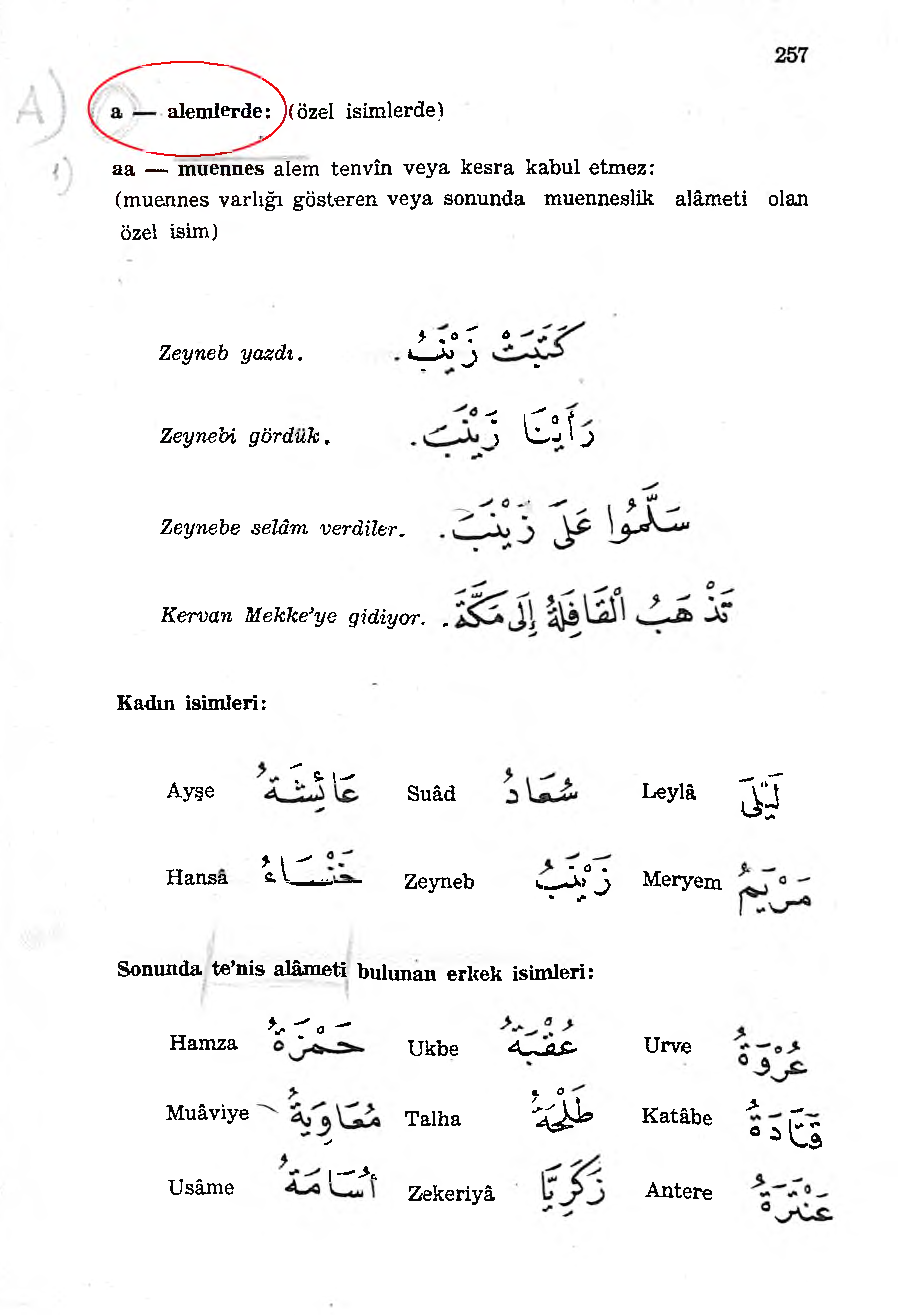 257
A)
a — alemlerde: (özel isimlerde)
1)
aa — muennes alem tenvîn veya kesra kabul etmez:
(muennes varlığı gösteren veya sonunda muenneslik alâmeti olan
özel isim)
Zeyneb yazdı. كَتَبَتْ زَيْنَبُ.
Zeynebi gördük. رَأَيْنَا زَيْنَبَ.
Zeynebe selâm verdiler. سَلَّمُوا عَلَى زَيْنَبَ.
Kervan Mekke'ye gidiyor. تَذْهَبُ الْقَافِلَةُ إِلَى مَكَّةَ.
Kadın isimleri:
Ayşe عَائِشَةُ Suâd سُعَادُ Leylâ لَيْلَى
Hansâ خَنْسَاءُ Zeyneb زَيْنَبُ Meryem مَرْيَمُ
Sonunda te'nis alâmeti bulunan erkek isimleri:
Hamza حَمْزَةُ Ukbe عُقْبَةُ Urve عُرْوَةُ
Muâviye مُعَاوِيَةُ Talha طَلْحَةُ Katâbe قَتَادَةُ
Usâme أُسَامَةُ Zekeriyâ زَكَرِيَّا Antere عَنْتَرَةُ